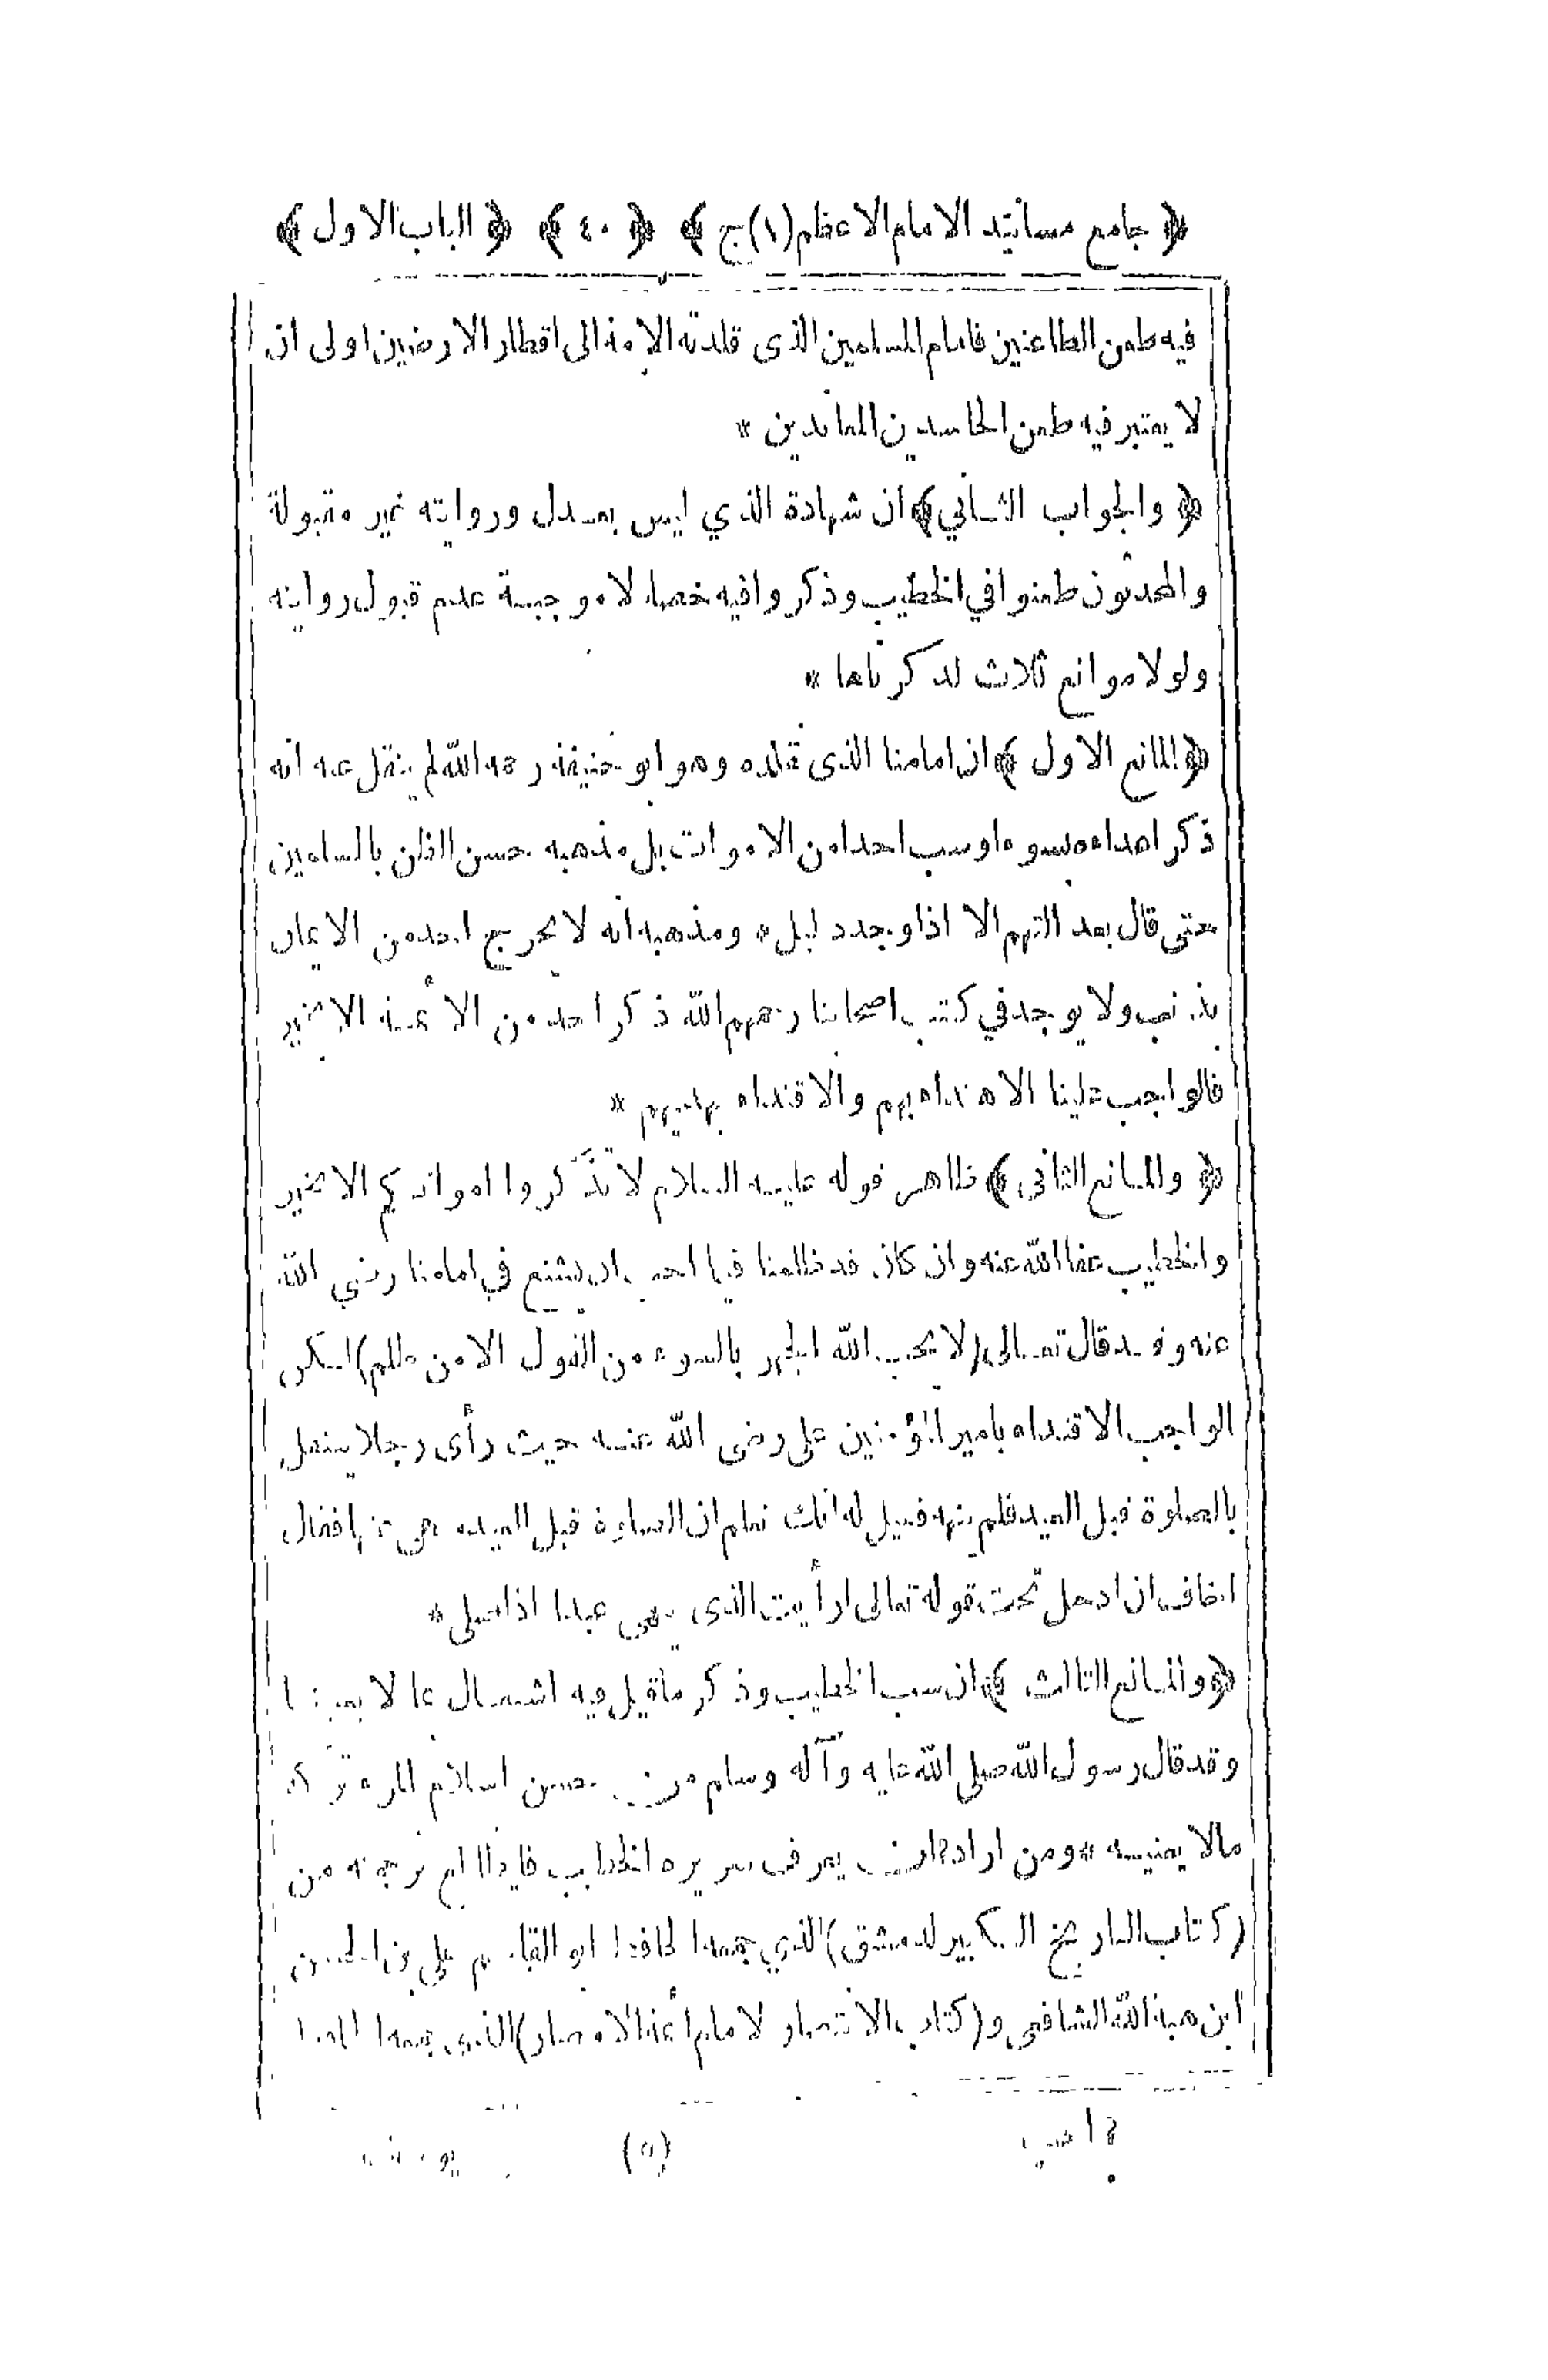 ﴿ جامع مسانيد الامام الاعظم (١) ج ﴾ ﴿ ٤٠ ﴾ ﴿ الباب الاول ﴾
فيه طعن الطاعنين فامام المسلمين الذى قلدته الامة الى اقطار الارضين اولى ان
لا يعتبر فيه طعن الحاسدين المعاندين *
﴿ والجواب الثاني ﴾ ان شهادة الذي ليس بعدل وروايته غير مقبولة
والمحدثون طعنوا في الخطيب وذكروا فيه خصالا موجبة عدم قبول روايته
ولولا موانع ثلاث لذكرناها *
﴿ المانع الاول ﴾ ان امامنا الذى نقلده وهو ابو حنيفة رحمه الله لم ينقل عنه انه
ذكر احدا بسوء او سب احدا من الاموات بل مذهبه حسن الظن بالمسلمين
حتى قال بعد التهم الا اذا وجد دليل * ومذهبه انه لا يخرج احد من الايمان
بذنب ولا يوجد في كتب اصحابنا رحمهم الله ذكر احد من الائمة الا بخير
فالواجب علينا الاهتداء بهم والاقتداء بهديهم *
﴿ والمانع الثانى ﴾ ظاهر قوله عليه السلام لا تذكروا امواتكم الا بخير
والخطيب عفا الله عنه وان كان قد ظلمنا فيما احب ان يشنع في امامنا رضي الله
عنه وقد قال تعالى (لا يحب الله الجهر بالسوء من القول الا من ظلم) لكن
الواجب الاقتداء بامير المؤمنين على رضى الله عنه حيث رأى رجلا يتنفل
بالصلوة قبل العيد فلم ينهه فقيل له انك تعلم ان الصلوة قبل العيد فقال
اخاف ان ادخل تحت قوله تعالى ارأيت الذى ينهى عبدا اذا صلى *
﴿ والمانع الثالث ﴾ ان سب الخطيب وذكر ما قيل فيه اشتغال بما لا يعنينا
وقد قال رسول الله صلى الله عليه وآله وسلم من حسن اسلام المرء تركه
مالا يعنيه * ومن اراد ان يعرف سريرة الخطيب فليطالع ترجمته من
(كتاب التاريخ الكبير لدمشق) الذي جمعه الحافظ ابو القاسم علي بن الحسن
ابن هبة الله الشافعى و (كتاب الانتصار لامام أئمة الامصار) الذى جمعه
(٥)